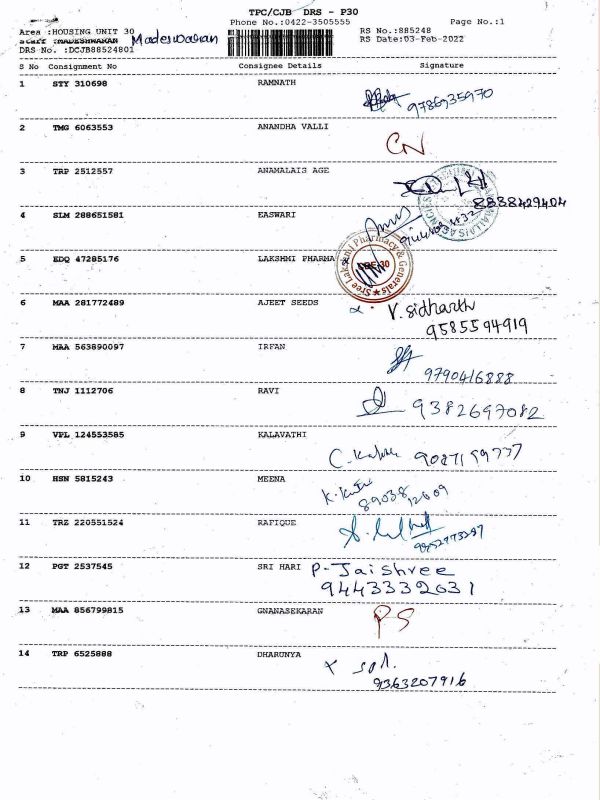 TPC/CJB DRS - P30
Phone No.:0422-3505555
Page No.:1
Area :HOUSING UNIT 30
RS No.:885248
Staff :MADESHWARAN Madeswaran
RS Date:03-Feb-2022
DRS No. :DCJB88524801
S No Consignment No Consignee Details Signature
1 STY 310698 RAMNATH
9786935970
2 TMG 6063553 ANANDHA VALLI
CN
3 TRP 2512557 ANAMALAIS AGE
8838429404
4 SLM 288651581 EASWARI
5 EDQ 47285176 LAKSHMI PHARMA
Sree Lakshmi Pharmacy & Generals
6 MAA 281772489 AJEET SEEDS
V. sidharth
9585594919
7 MAA 563890097 IRFAN
9790416888
8 TNJ 1112706 RAVI
9382697082
9 VPL 124553585 KALAVATHI
10 HSN 5815243 MEENA
8903812609
11 TRZ 220551524 RAFIQUE
12 PGT 2537545 SRI HARI P-Jaishree
9443332031
13 MAA 856799815 GNANASEKARAN
PS
14 TRP 6525888 DHARUNYA
9363207916